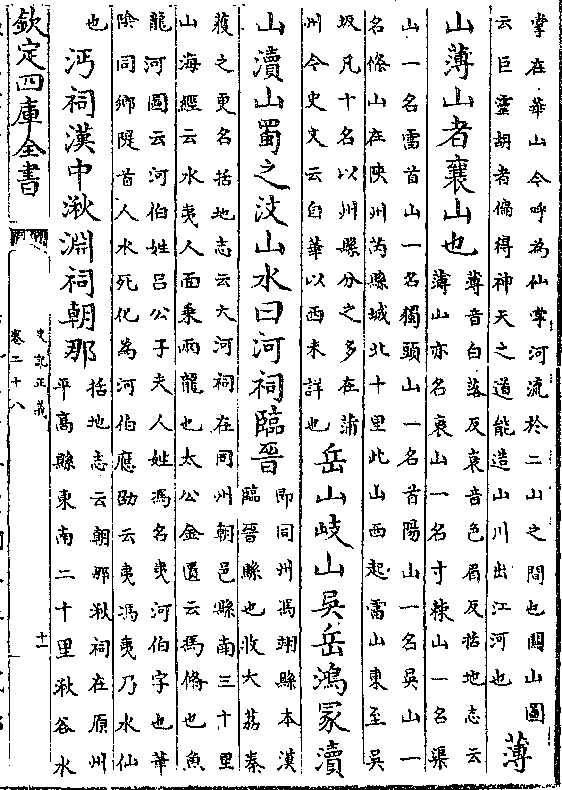 掌在華山今呼為仙掌河流於二山之間也開山圖
云巨靈胡者偏得神天之道能造山川出江河也
薄
山薄山者襄山也
薄音白落反衰音色眉反括地志云
薄山亦名衰山一名寸棘山一名渠
山一名雷首山一名獨頭山一名首陽山一名吳山一
名條山在陜州芮縣城北十里此山西起雷山東至吳
坂凡十名以州縣分之多在蒲
州今史文云自華以西未詳也
岳山岐山吳岳鴻冢瀆
山瀆山蜀之汶山水曰河祠臨晉
即同州馮翊縣本漢
臨晉縣也收大荔秦
獲之更名括地志云大河祠在同州朝邑縣南三十里
山海經云水夷人面乗兩龍也太公金匱云馮脩也魚
龍河圖云河伯姓吕公子夫人姓馮名夷河伯字也華
陰同鄉隄首人水死化為河伯應劭云夷馮夷乃水仙
也
沔祠漢中湫淵祠朝那
括地志云朝那湫祠在原州
平高縣東南二十里湫谷水
欽定四庫全書
史記正義
卷二十八
十一